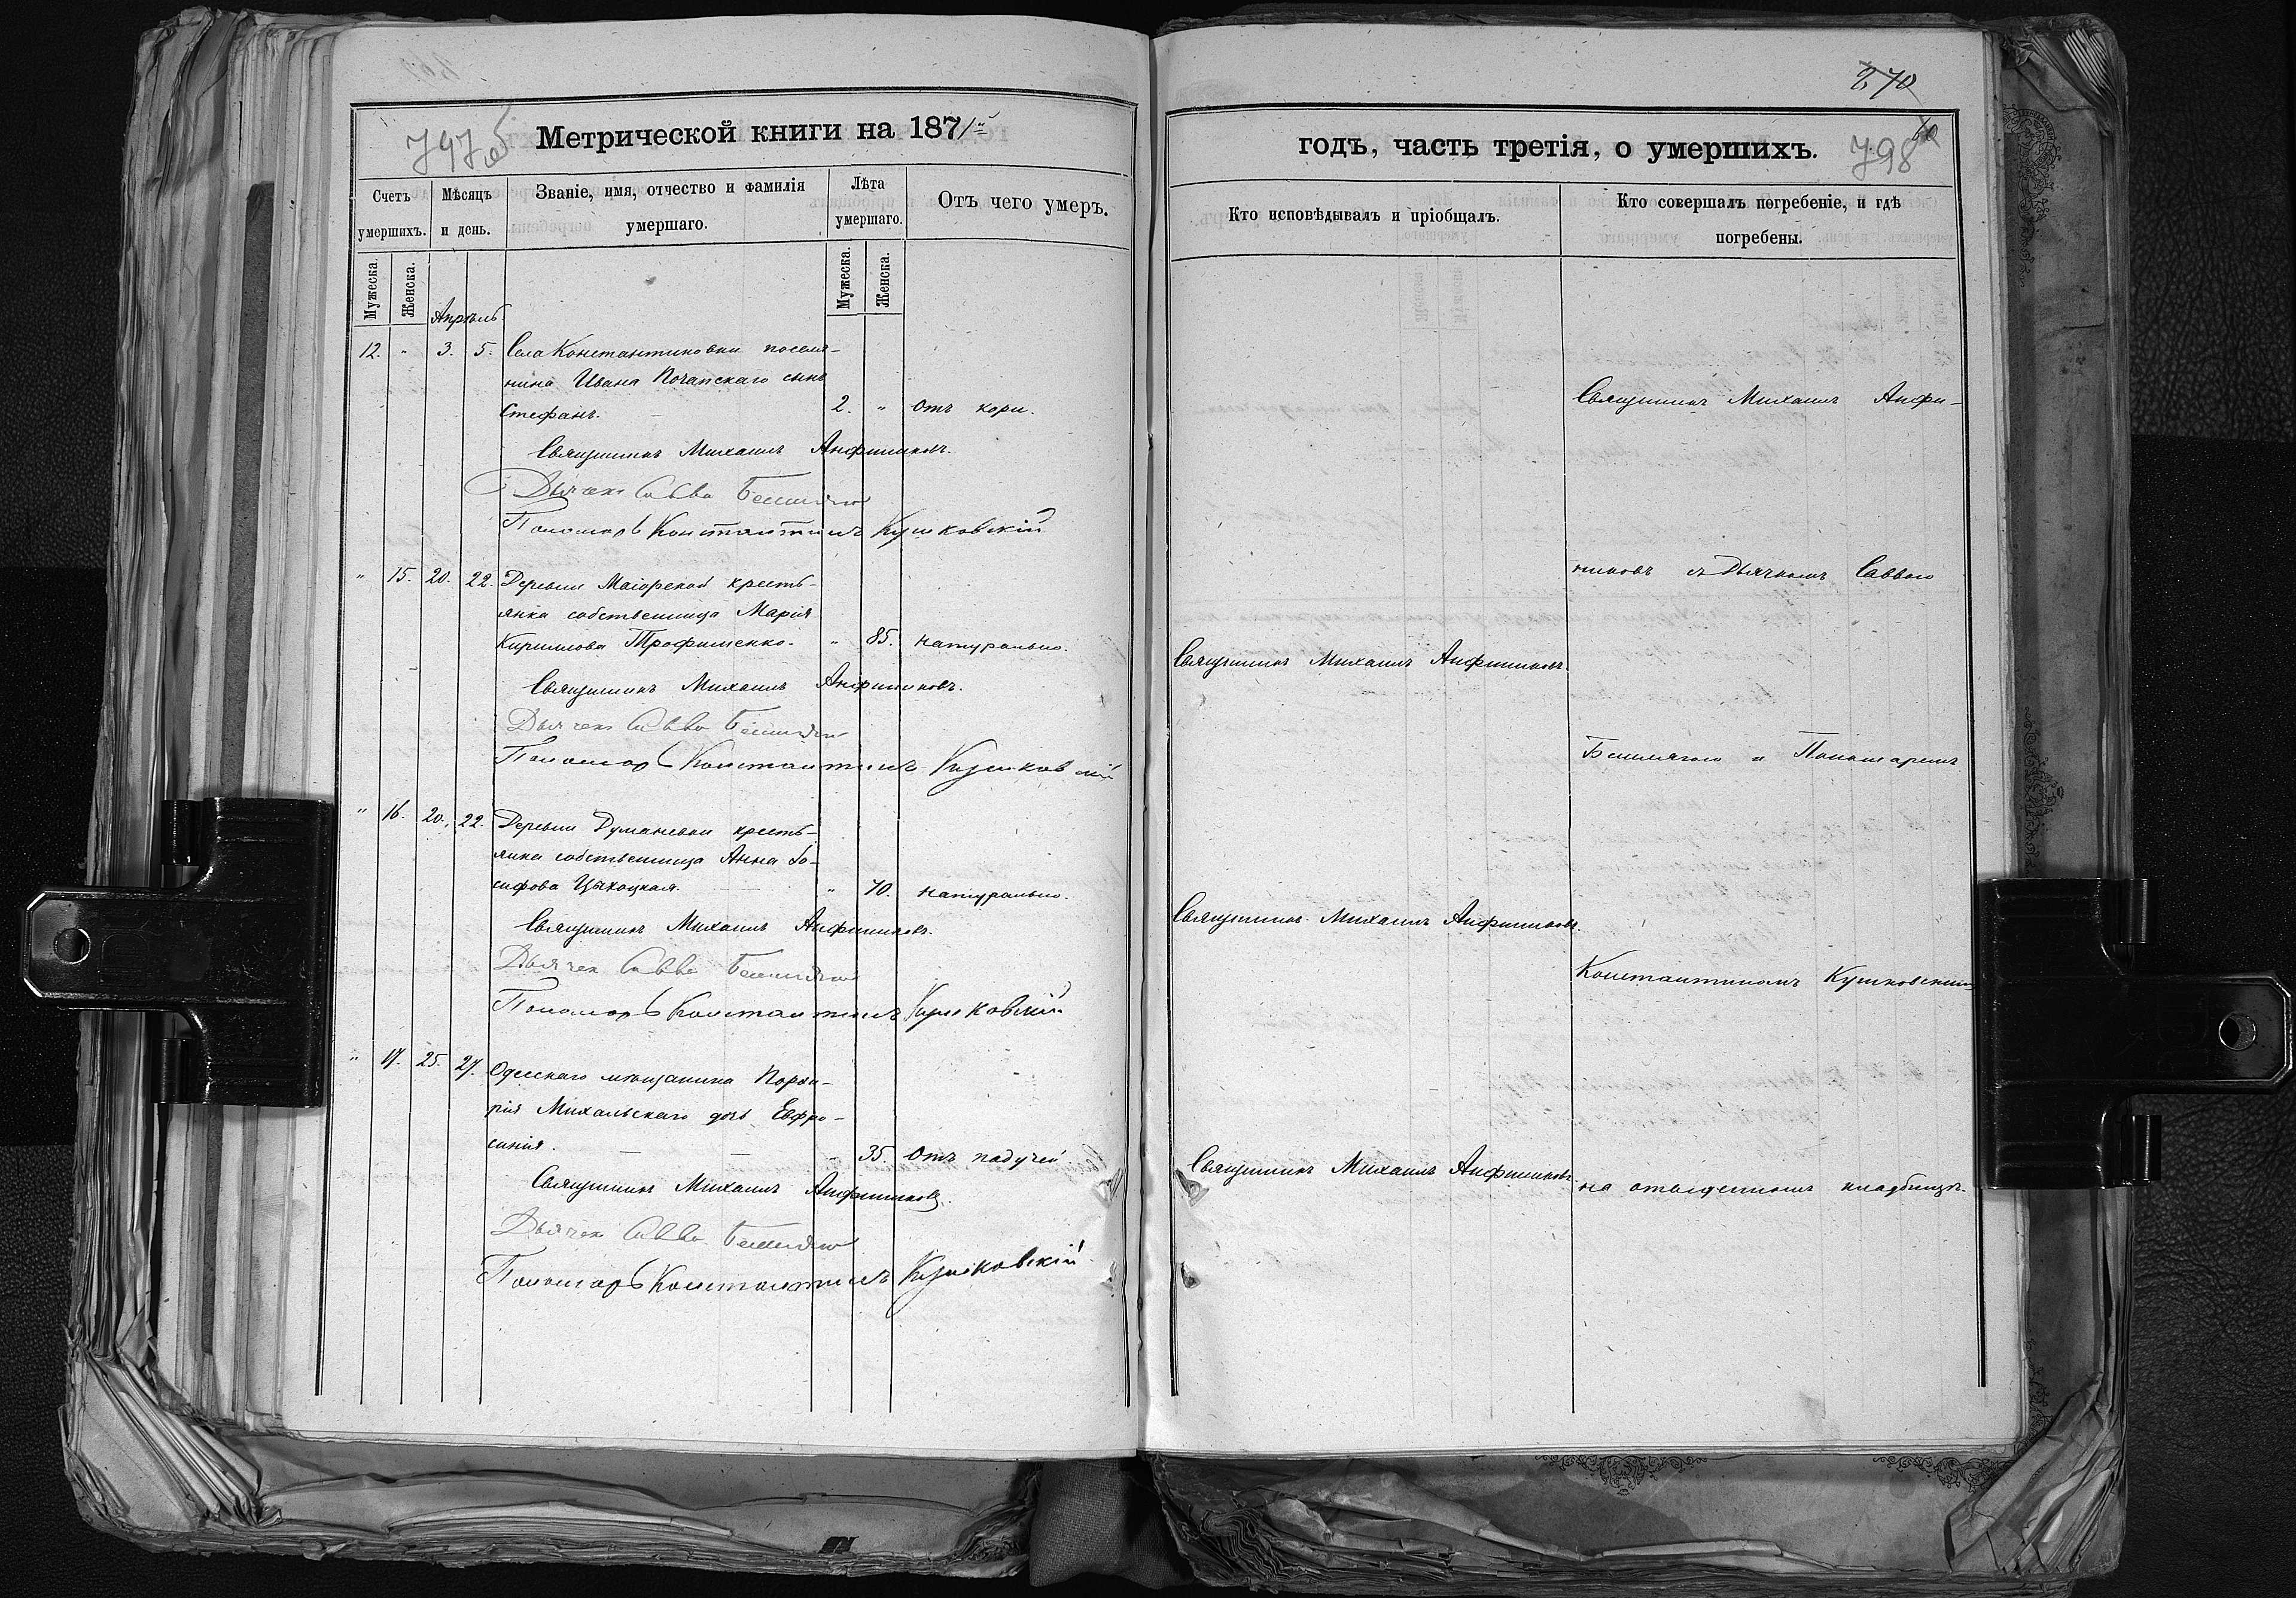 797 об
Метрической книги на 1871й
Счетъ умершихъ.
Мѣсяцъ и день.
Званіе, имя, отчество и фамилія умершаго.
Лѣта умершаго.
Отъ чего умеръ.
Мужеска.
Женска.
Мужеска.
Женска.
Апрѣль
12. " 3. 5. Села Константиновки поселя-
нина Ивана Почапскаго сынъ
Стефанъ. — 2. " Отъ кори.
Священникъ Михаилъ Анфиминовъ.
Дьячекъ Савва
Пономарь Константинъ Кушковскій
" 15. 20. 22. Деревни Маіорской кресть-
янка собственница Марія
Кириллова Трофименко. " 85. натурально.
Священникъ Михаилъ Анфиминовъ.
Дьячекъ Савва
Пономарь Константинъ Кушковскій
" 16. 20. 22. Деревни Думаневки кресть-
янка собственница Анна Іо-
сифова Цыхоцкая. — " 70. натурально.
Священникъ Михаилъ Анфиминовъ.
Дьячекъ Савва
Пономарь Константинъ Кушковскій
" 17. 25. 27. Одесскаго мѣщанина Порфи-
рія Михальскаго дочь Евфро-
синія. — — " 35. Отъ падучей
Священникъ Михаилъ Анфиминовъ.
Дьячекъ Савва
Пономарь Константинъ Кушковскій
270
годъ, часть третія, о умершихъ.
798
Кто исповѣдывалъ и пріобщалъ.
Кто совершалъ погребеніе, и гдѣ погребены.
Священникъ Михаилъ Анфи-
миновъ съ Дьячкомъ Саввою
Священникъ Михаилъ Анфиминовъ.
и Пономаремъ
Священникъ Михаилъ Анфиминовъ.
Константиномъ Кушковскимъ
Священникъ Михаилъ Анфиминовъ.
на отведенномъ кладбищѣ.